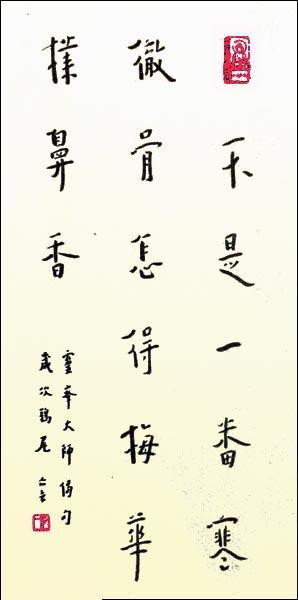 不是一番寒
徹骨怎得梅華
撲鼻香
靈峯大師偈句
歲次鶉尾 亡言